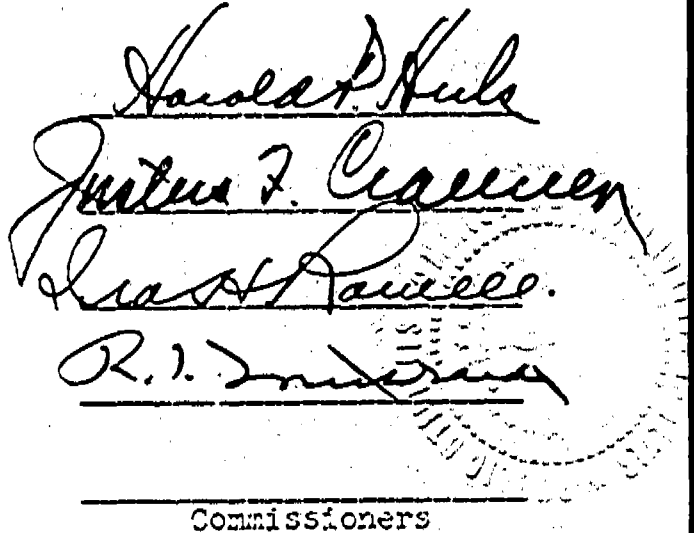 Harold P. Huls
Justus F. Craemer
Ira H Rowell.
R.
Commissioners